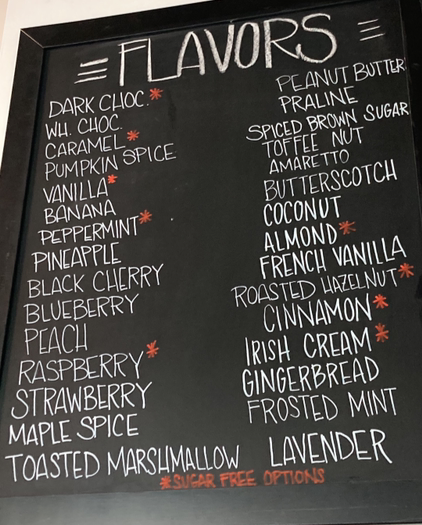 FLAVORS
DARK CHOC.*
WH. CHOC.
CARAMEL*
PUMPKIN SPICE
VANILLA*
BANANA
PEPPERMINT*
PINEAPPLE
BLACK CHERRY
BLUEBERRY
PEACH
RASPBERRY*
STRAWBERRY
MAPLE SPICE
TOASTED MARSHMALLOW
PEANUT BUTTER
PRALINE
SPICED BROWN SUGAR
TOFFEE NUT
AMARETTO
BUTTERSCOTCH
COCONUT
ALMOND*
FRENCH VANILLA
ROASTED HAZELNUT*
CINNAMON*
IRISH CREAM*
GINGERBREAD
FROSTED MINT
LAVENDER
*SUGAR FREE OPTIONS